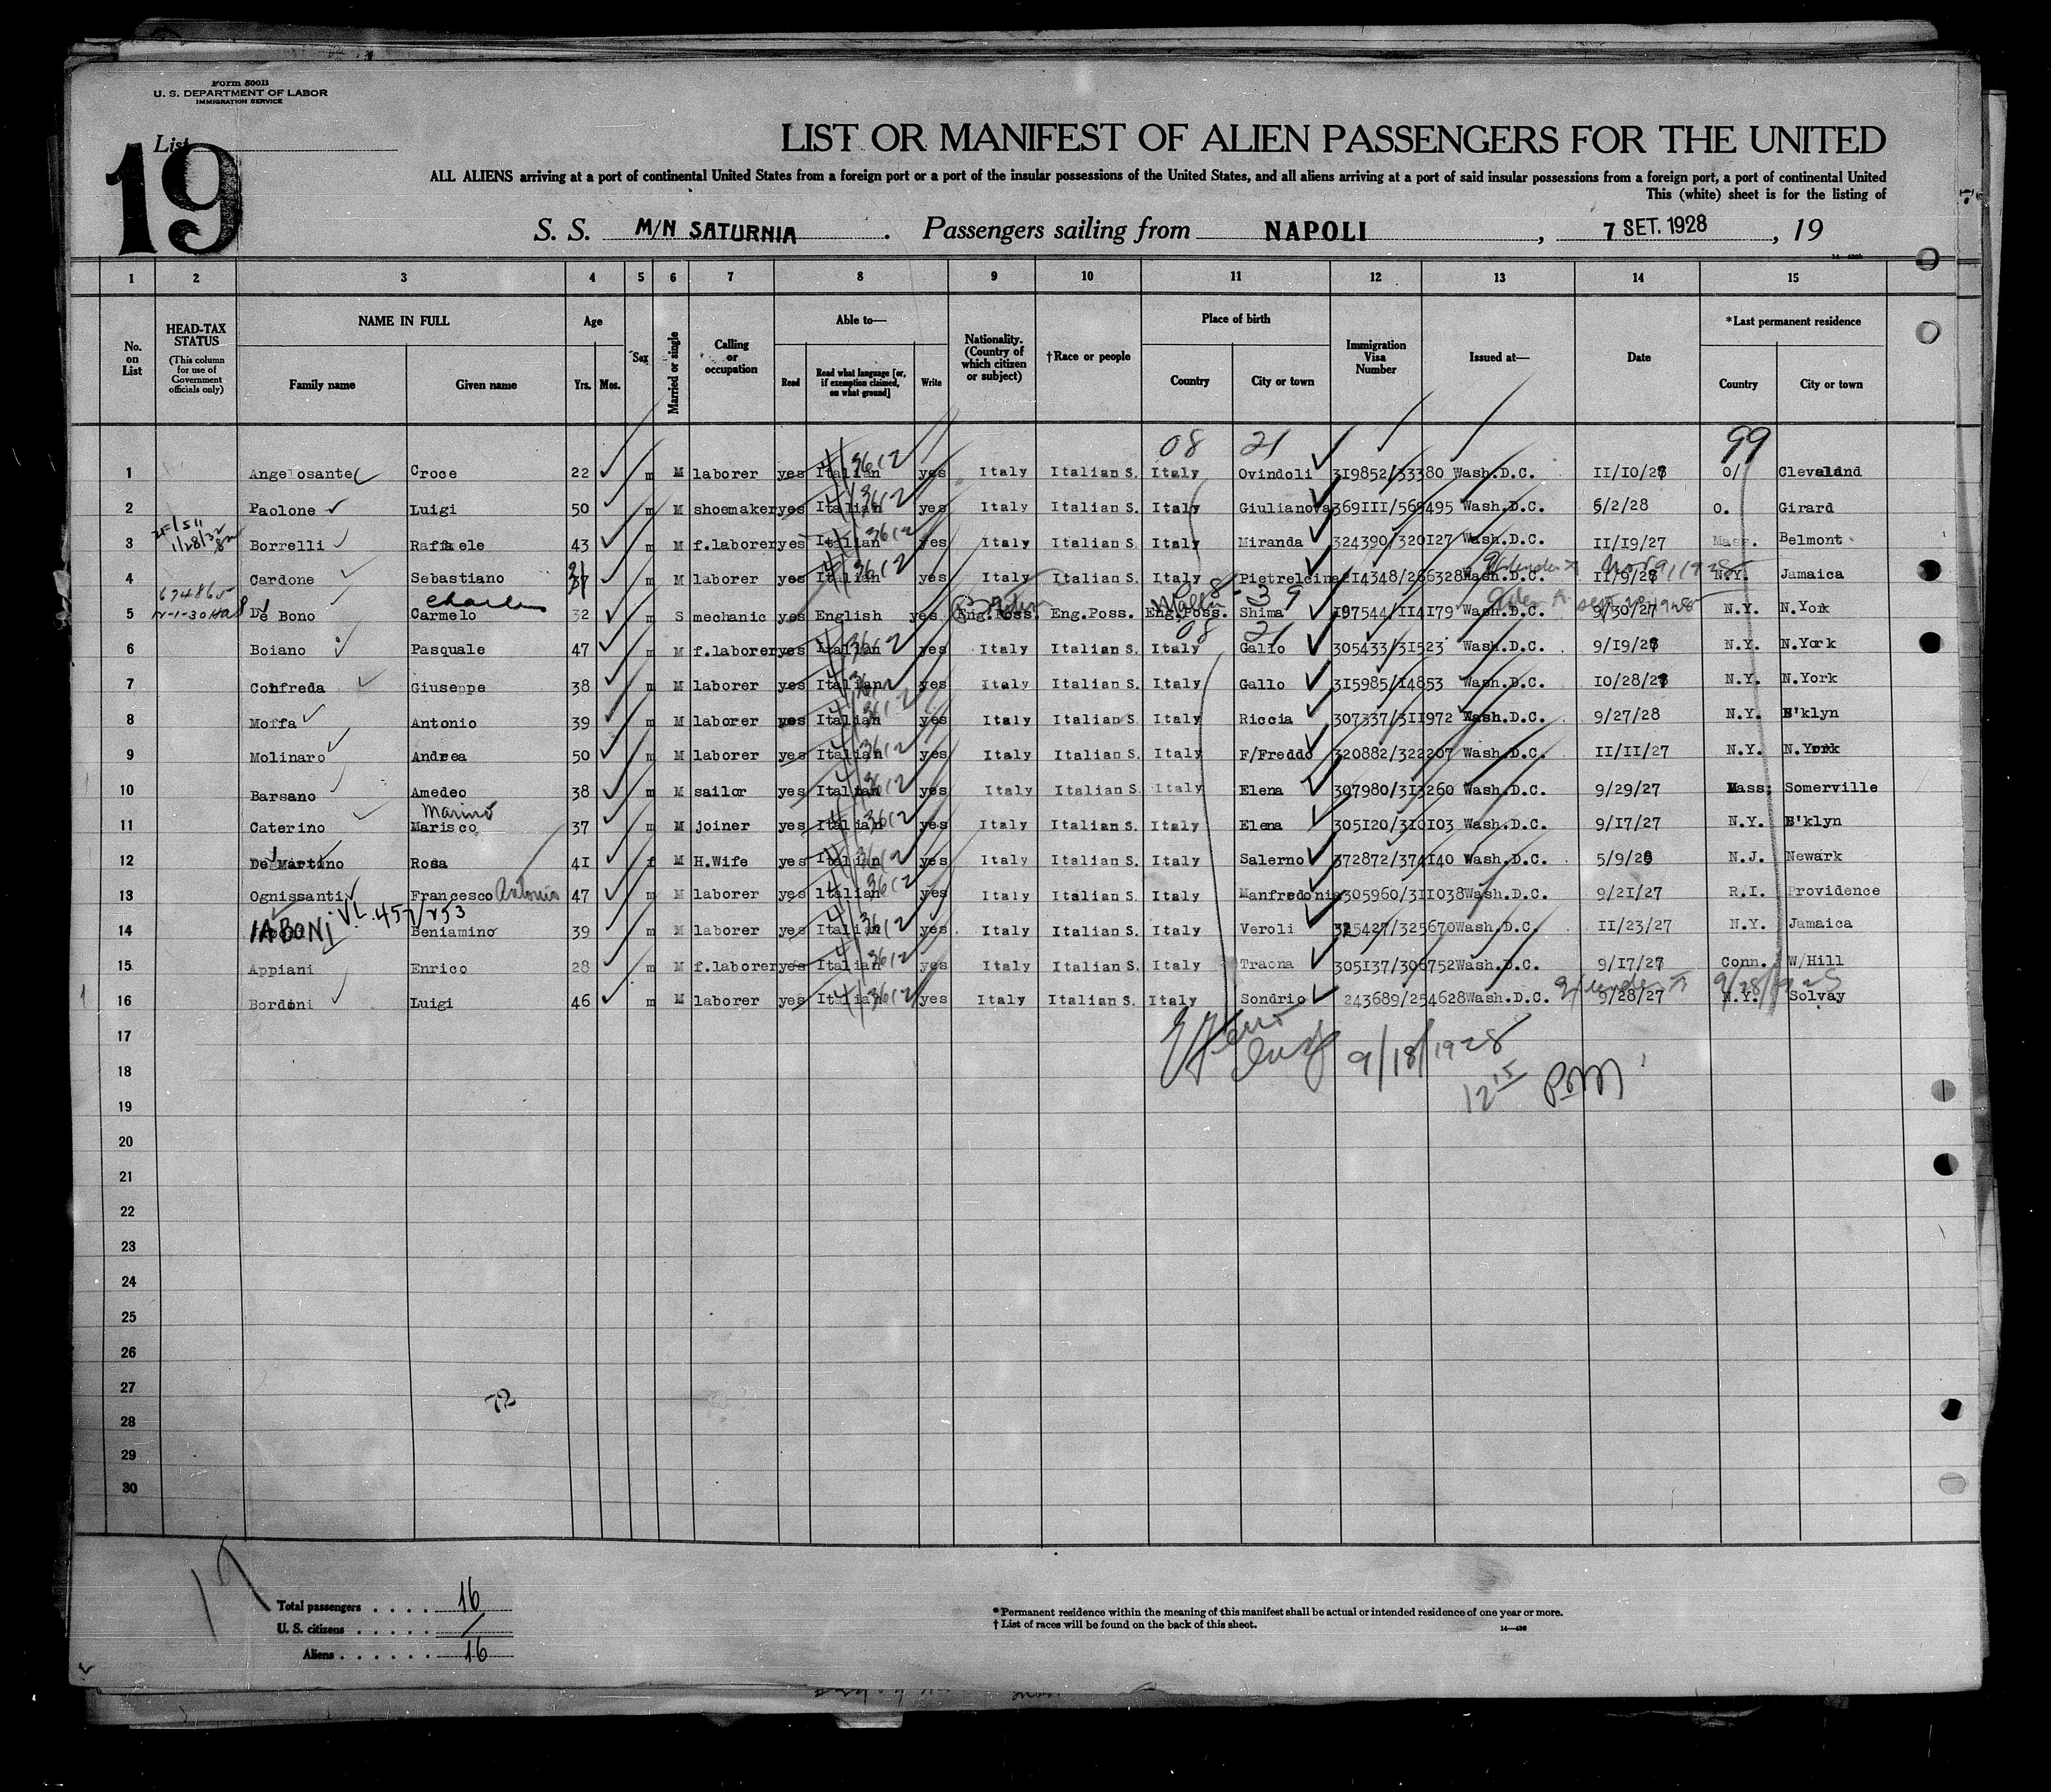 Form 500B
U. S. DEPARTMENT OF LABOR
IMMIGRATION SERVICE
List
19
LIST OR MANIFEST OF ALIEN PASSENGERS FOR THE UNITED
ALL ALIENS arriving at a port of continental United States from a foreign port or a port of the insular possessions of the United States, and all aliens arriving at a port of said insular possessions from a foreign port, a port of continental United
This (white) sheet is for the listing of
S. S. M/N SATURNIA. Passengers sailing from NAPOLI, 7 SET. 1928, 19
1 2 3 4 5 6 7 8 9 10 11 12 13 14 15
No. on List
HEAD-TAX STATUS (This column for use of Government officials only)
NAME IN FULL
Family name Given name
Age
Yrs. Mos.
Sex
Married or single
Calling or occupation
Able to—
Read
Read what language [or, if exemption claimed, on what ground]
Write
Nationality. (Country of which citizen or subject)
†Race or people
Place of birth
Country City or town
Immigration Visa Number
Issued at—
Date
*Last permanent residence
Country City or town
08 21 99
1 Angelosante Croce 22 m M laborer yes Italian yes Italy Italian S. Italy Ovindoli 319852/33380 Wash.D.C. 11/10/28 O/ Cleveland
2 Paolone Luigi 50 m M shoemaker yes Italian yes Italy Italian S. Italy Giulianova 369111/569495 Wash.D.C. 6/2/28 O. Girard
3 Borrelli Raffaele 43 m M f.laborer yes Italian yes Italy Italian S. Italy Miranda 324390/320127 Wash.D.C. 11/19/27 Mass. Belmont
4 Cardone Sebastiano 37 m M laborer yes Italian yes Italy Italian S. Italy Pietrelcina 214348/266328 Wash.D.C. 11/9/28 N.Y. Jamaica
674865
Charles
Malta 8-39
5 Di Bono Carmelo 32 m S mechanic yes English yes Eng.Poss. Eng.Poss. Eng.Poss. Shima 197544/114179 Wash.D.C. 9/30/27 N.Y. N.York
08 21
6 Boiano Pasquale 47 m M f.laborer yes Italian yes Italy Italian S. Italy Gallo 305433/31523 Wash.D.C. 9/19/28 N.Y. N.York
7 Confreda Giuseppe 38 m M laborer yes Italian yes Italy Italian S. Italy Gallo 315985/14853 Wash.D.C. 10/28/27 N.Y. N.York
8 Moffa Antonio 39 m M laborer yes Italian yes Italy Italian S. Italy Riccia 307337/311972 Wash.D.C. 9/27/28 N.Y. B'klyn
9 Molinaro Andrea 50 m M laborer yes Italian yes Italy Italian S. Italy F/Freddo 320882/322207 Wash.D.C. 11/11/27 N.Y. N.York
10 Barsano Amedeo 38 m M sailor yes Italian yes Italy Italian S. Italy Elena 307980/313260 Wash.D.C. 9/29/27 Mass. Somerville
Marino
11 Caterino Marisco 37 m M joiner yes Italian yes Italy Italian S. Italy Elena 305120/310103 Wash.D.C. 9/17/27 N.Y. B'klyn
12 De Martino Rosa 41 f M H.Wife yes Italian yes Italy Italian S. Italy Salerno 372872/374140 Wash.D.C. 5/9/28 N.J. Newark
13 Ognissanti Francesco Antonio 47 m M laborer yes Italian yes Italy Italian S. Italy Manfredonia 305960/311038 Wash.D.C. 9/21/27 R.I. Providence
14 IABONI Beniamino 39 m M laborer yes Italian yes Italy Italian S. Italy Veroli 325427/325670 Wash.D.C. 11/23/27 N.Y. Jamaica
15 Appiani Enrico 28 m M f.laborer yes Italian yes Italy Italian S. Italy Traona 305137/306752 Wash.D.C. 9/17/27 Conn. W/Hill
16 Bordoni Luigi 46 m M laborer yes Italian yes Italy Italian S. Italy Sondrio 243689/254628 Wash.D.C. 9/28/27 N.Y. Solvay
17
9/18/1928
18
12 15 PM
19
20
21
22
23
24
25
26
27
72
28
29
30
19
Total passengers . . . . 16
U. S. citizens . . . . . /
Aliens . . . . . . 16
*Permanent residence within the meaning of this manifest shall be actual or intended residence of one year or more.
†List of races will be found on the back of this sheet.
14—430